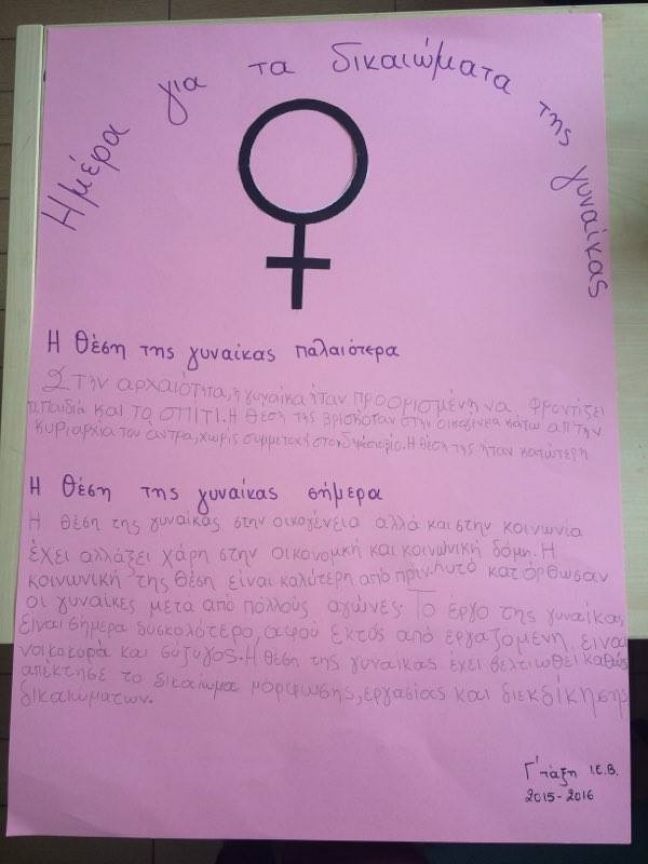 Ημέρα για τα δικαιώματα της γυναίκας
Η θέση της γυναίκας παλαιότερα
Στην αρχαιότητα, η γυναίκα ήταν προορισμένη να φροντίζει
παιδιά και το σπίτι. Η θέση της βρισκόταν στην οικογένεια κάτω απ την
κυριαρχία του άντρα, χωρίς συμμετοχή στον δημόσιο βίο. Η θέση της ήταν κατώτερη
Η θέση της γυναίκας σήμερα
Η θέση της γυναίκας στην οικογένεια αλλά και στην κοινωνία
έχει αλλάξει χάρη στην οικονομική και κοινωνική δόμη. Η
κοινωνική της θέση είναι καλύτερη από πριν. Αυτό κατόρθωσαν
οι γυναίκες μετα από πολλούς αγώνες. Το έργο της γυναίκας
είναι σήμερα δυσκολότερο, αφού εκτός από εργαζομένη, είναι
νοικοκυρά και σύζυγος. Η θέση της γυναίκας έχει βελτιωθεί καθώς
απέκτησε το δικαίωμα μόρφωσης, εργασίας και διεκδίκησης
δικαιωμάτων.
Γ' τάξη Ι.Ε.Β.
2015-2016